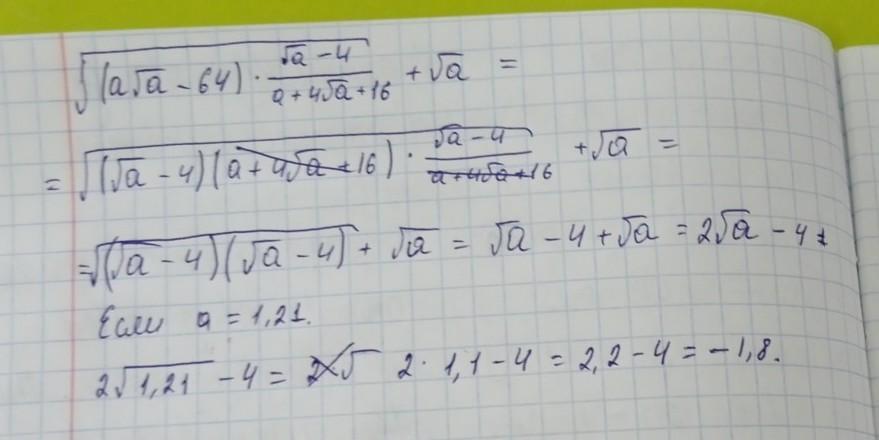 √((a√a − 64) · (√a − 4)/(a + 4√a + 16)) + √a =
= √((√a − 4)(a + 4√a + 16) · (√a − 4)/(a + 4√a + 16)) + √a =
= √((√a − 4)(√a − 4)) + √a = √a − 4 + √a = 2√a − 4
Если a = 1,21.
2√1,21 − 4 = 2√ 2 · 1,1 − 4 = 2,2 − 4 = −1,8.